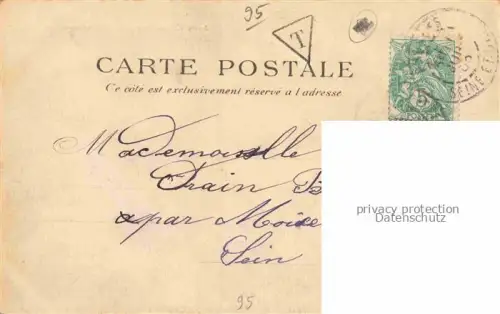 95
T
CARTE POSTALE
Ce côté est exclusivement réservé a l'adresse
SEINE ET
5
Mademoiselle
Drain B
par Moi
Sein
privacy protection
Datenschutz
95